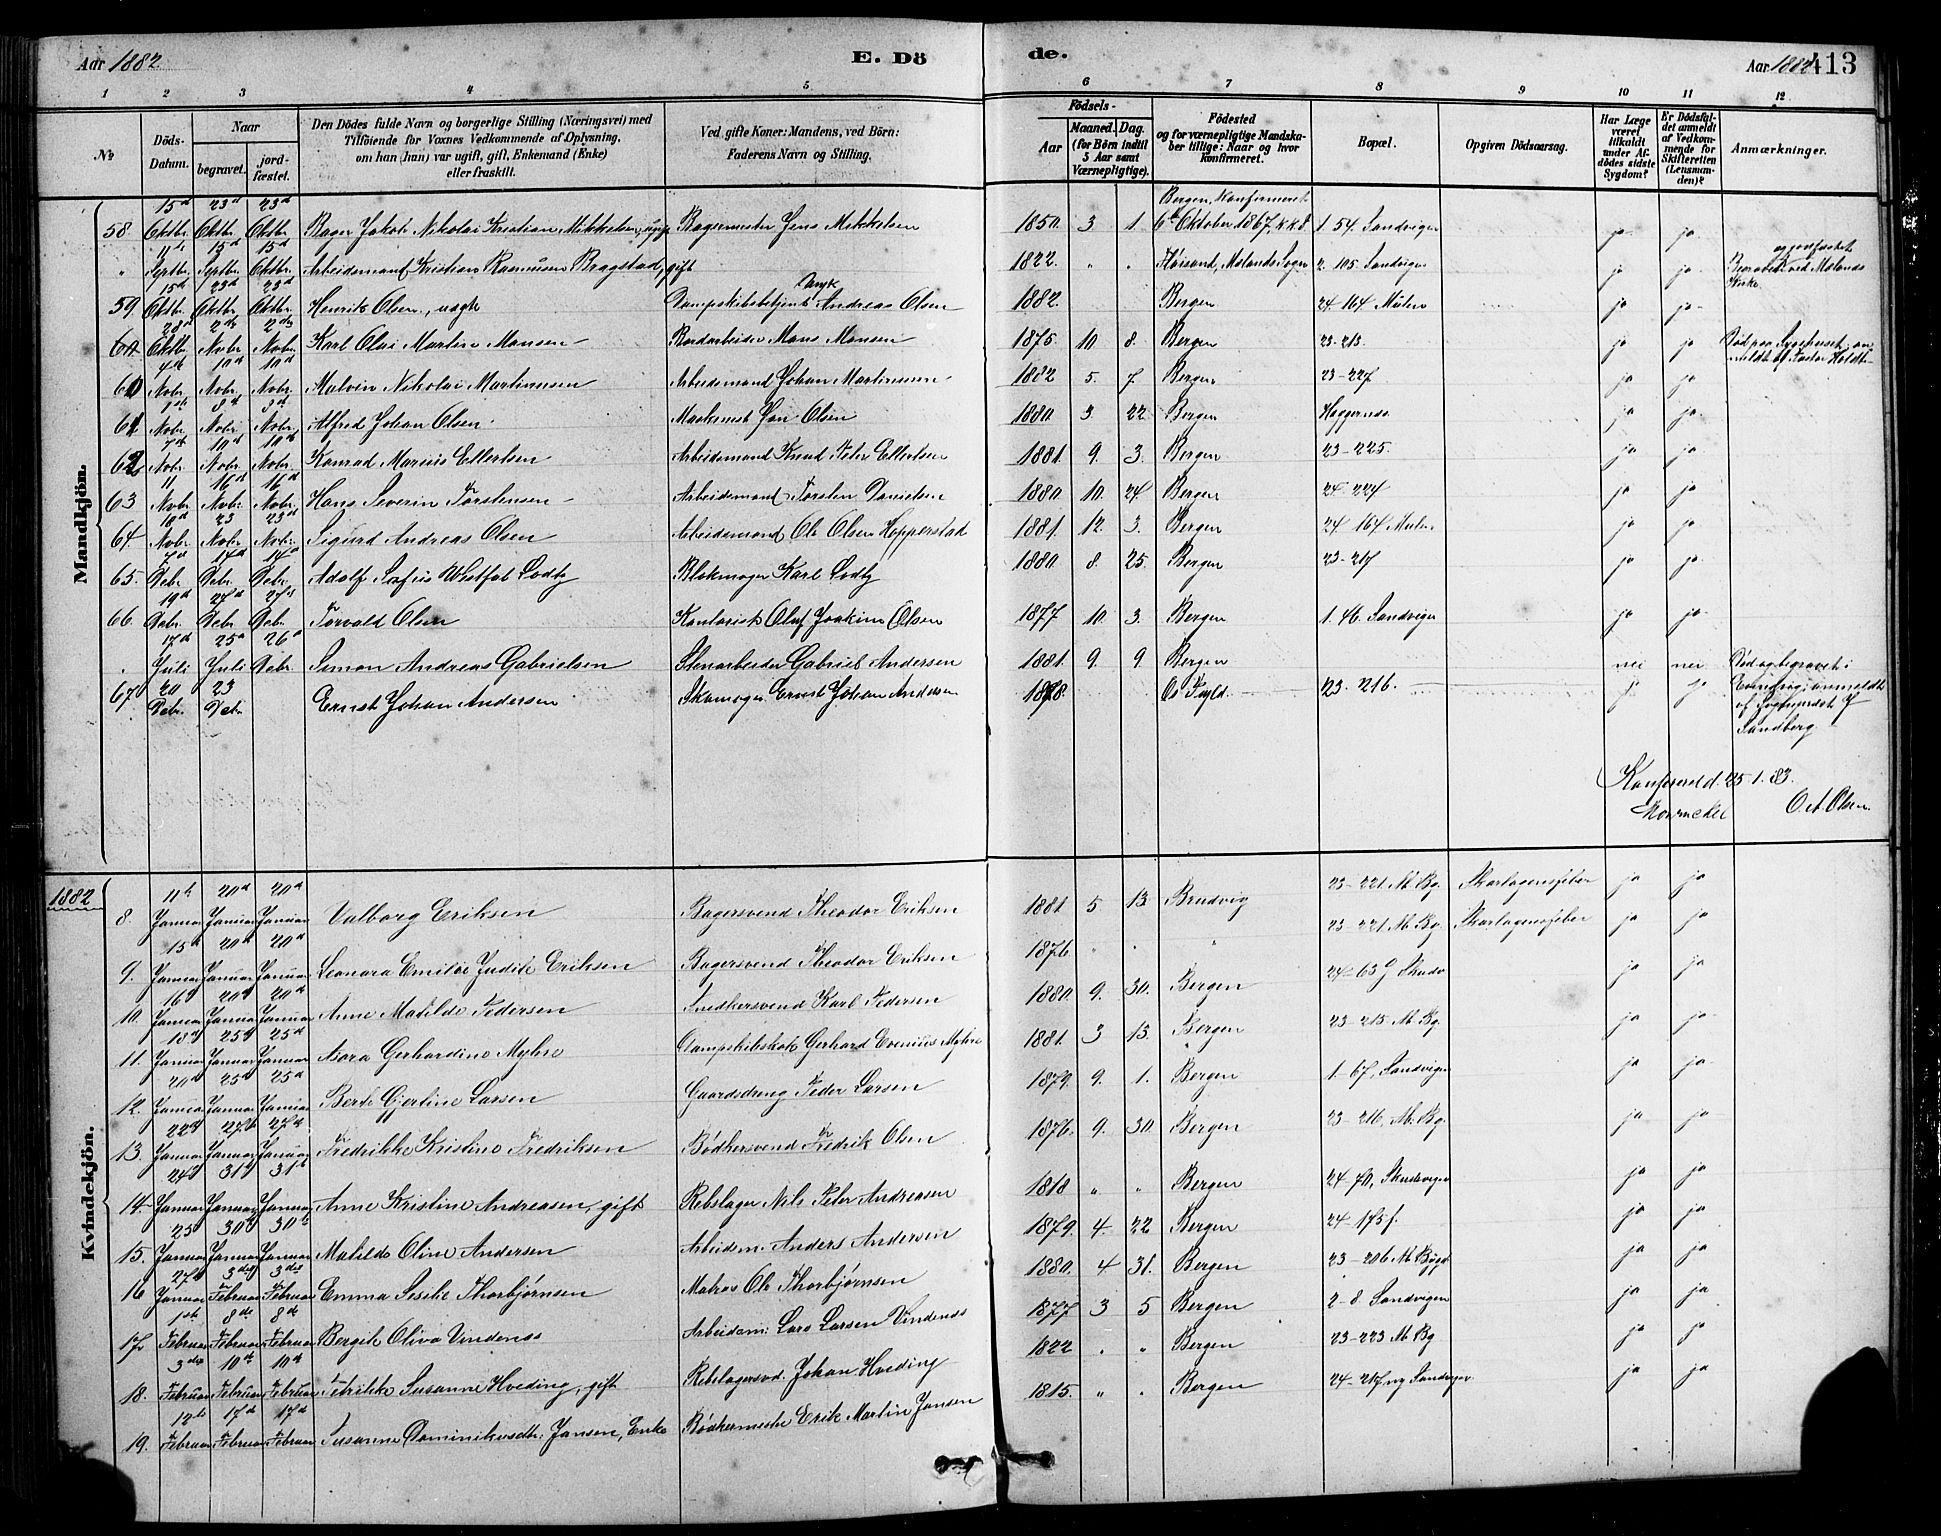 Aar 1882. E. Dö
de. Aar 1882. 413
1 2 3 4 5 6 7 8 9 10 11 12
No
Döds-Datum.
Naar begravet. jordfæstet.
Den Dödes fulde Navn og borgerlige Stilling (Næringsvei) med
Tilföiende for Voxnes Vedkommende af Oplysning,
om han (hun) var ugift, gift, Enkemand (Enke)
eller fraskilt.
Ved gifte Koner: Mandens, ved Börn:
Faderens Navn og Stilling.
Födsels-
Aar Maaned. Dag.
(for Börn indtil 5 Aar samt Værnepligtige).
Födested
og for værnepligtige Mandskaber tillige: Naar og hvor konfirmeret.
Bopæl.
Opgiven Dödsaarsag.
Har Læge været tilkaldt under Afdödes sidste Sygdom?
Er Dödsfaldet anmeldt af Vedkommende for Skifteretten (Lensmanden)?
Anmærkninger.
Mandkjön.
58. 15d Oktbr. 23d Oktbr. 23d Oktbr. Bager Jakob Nikolai Kristian Mikkelsen, ugp Bagermester Jens Mikkelsen 1850. 3 1. Bergen, Konfirmeret 6te Oktober 1867, K.K.d. 1. 54 Sandvigen ja ja
" 11te Septbr. 15d Septbr. 15d Oktbr. Arbeidsmand Kristian Rasmussen Bragstad, gift 1822. " " Mælands Sogn 2. 105 Sandvigen ja ja Begravet og jordfæstet ved Mælands Kirke.
59. 15d Oktbr. 23d Oktbr. 23d Oktbr. Henrik Olsen, Dampskibsbetjent Andreas Olsen 1882. Bergen 24-164 Mulen ja ja
60 28d Oktbr. 2den Novbr. 2den Novbr. Karl Olai Martin Monsen Mons Monsen 1875 10 8. Bergen 23-213 ja ja Död paa Sygehuset; anmeldt af Pastor Holdt
60 4de Novbr. 10d Novbr. 10d Novbr. Malvin Nikolai Martinusen Arbeidsmand Johan Martinusen 1882 5. 7 Bergen 23-227 ja ja
61 1ste Novbr. 8d Novbr. 8d Novbr. Alfred Johan Olsen Jan Olsen 1880. 3 22 Bergen Heggernes. ja ja
62 7de Novbr. 10d Novbr. 10d Novbr. Konrad Marius Ellertsen Arbeidsmand Knud Peter Ellertsen 1881. 9. 3. Bergen 23-225. ja ja
63 11 Novbr. 16d Novbr. 16d Novbr. Hans Severin Torstensen Arbeidsmand Torsten Danielsen 1880 10. 24 Bergen 24-224 ja ja
64. 18d Novbr. 23 Novbr. 23d Novbr. Sigurd Andreas Olsen Arbeidsmand Ole Olsen Hopperstad 1881. 12. 3. Bergen 24 164 Mulen ja ja
65. 7d Debr. 14d Debr. 14d Debr. Adolf Sofus Westfal Lodtz Blokmager Karl Lodtz 1880 8. 25. Bergen 23-217 ja ja
66. 19d Debr. 27d Debr. 27d Debr. Torvald Olsen Kontorist Oluf Joakim Olsen 1877 10. 3. Bergen 1. 46. Sandvigen ja ja
. 17d Juli 25d Juli 26d Debr. Simon Andreas Gabrielsen Stenarbeider Gabriel Andersen 1881. 9. 9 Bergen nei nei Död og begravet i anmeldt af Sogneprest J Sandberg.
67. 20 Debr. 23 Debr. Ernst Johan Andersen Skomager Ernst Johan Andersen 1878. 23. 216. ja ja
Konfereret d. 25-1. 83.
O. A. Olsen.
Kvindekjön.
1882
8. 11te Januar 20d Januar 20d Januar Valborg Eriksen Bagersvend Theodor Eriksen 1881 5 13 Bruvig 23-221 M. Bg. Skarlagensfeber ja ja
9. 15d Januar 20d Januar 20d Januar Leonora Emilie Judit Eriksen Bagersvend Theodor Eriksen 1876. " " " 23-221 M. Bg. Skarlagensfeber ja ja
10. 16d Januar 20d Januar 20d Januar Anne Matilde Pedersen Snedkersvend Karl Pedersen 1880. 9. 30. Bergen 24-63 ja ja
11. 18d Januar 25d Januar 25d Januar Gerhardine Myhre Gerhard Myhre 1881. 3 13. Bergen 23-215 M. Bg. ja ja
12. 20d Januar 25d Januar 25d Januar Berte Gjertine Larsen Gaardsdreng Peder Larsen 1879. 9. 1. Bergen 1-67, Sandvigen ja ja
13. 22d Januar 27d Januar 27d Januar Fredrikke Kristine Fredriksen Bødkersvend Fredrik Olsen 1876. 9. 30. Bergen 23-216, M. Bg. ja ja
14. 24d Januar 31d Januar 31te Januar Anne Kristine Andreasen, gift Rebslager Nils Peter Andreasen 1818 " " Bergen 24-70, Skudevigen ja ja
15. 25 Januar 30d Januar 30te Januar Matilde Oline Andersen Arbeidsm. Anders Andersen 1879. 4. 22 Bergen 24-175 f. ja ja
16 27d Januar 3die Februar 3die Februar Emma Sesilie Thorbjørnsen Matros Ole Thorbjørnsen 1880. 4 31. Bergen 23-206 M. Bygd ja ja
17. 1ste Februar 8de Februar 8de Februar Bergit Oliva Vindenes Arbeidsm: Lars Larsen Vindenes 1877 3 5 Bergen 2-8. Sandvigen ja ja
18. 3die Februar 10de Februar 10de Februar Petrikke Susanne Hveding, gift Rebslagersvd. Johan Hveding 1822 " " Bergen 23-223 M. Bg ja ja
19. 12te Februar 17d Februar 17d Februar Susanne Dominikusdtr: Jansen, Enke Bødkermester Erik Martin Jansen 1815. " " Bergen 24-217 ny Sandvigen ja ja